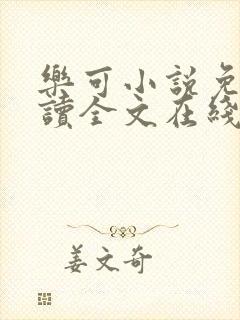 樂可小說免
讀全文在綫
姜文奇